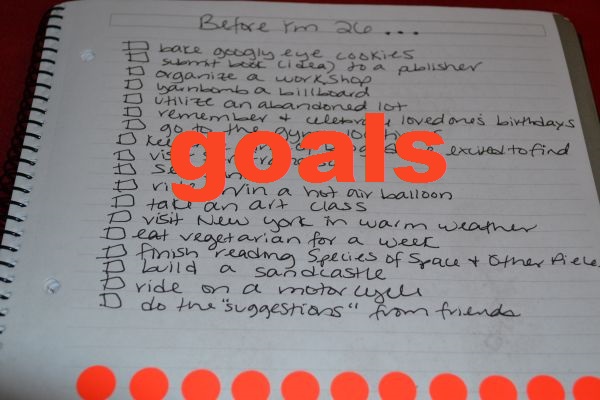 Before I'm 26...
bake googly eye cookies
submit book (idea) to a publisher
organize a workshop
yarnbomb a billboard
utilize an abandoned lot
remember + celebrate loved one's birthdays
go to the gym 10 times
keep
excited to find
goals
visit San Francisco
ride on/in a hot air balloon
take an art class
visit New York in warm weather
eat vegetarian for a week
finish reading Species of Space + Other Pieces
build a sandcastle
ride on a motorcycle
do the "suggestions" from friends